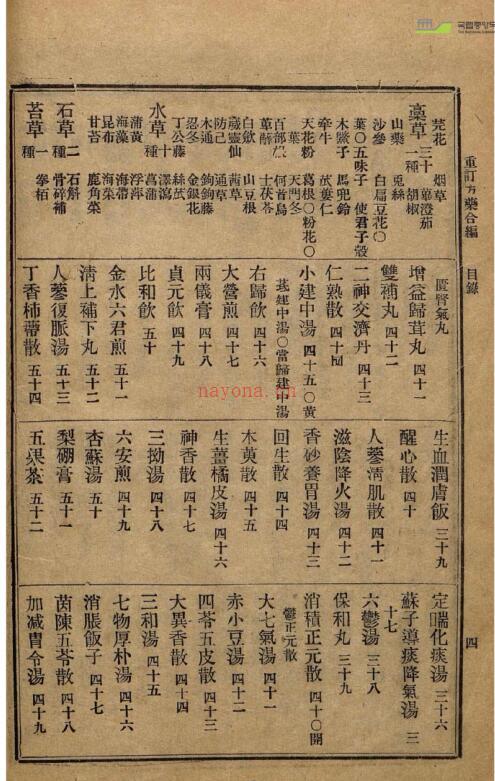 국립중앙도
重訂方藥合編 目錄
四
芫花 烟草
藁草 三十一種 蓽澄茄 胡椒
山藥 兎絲
沙參 白扁豆花〇
葉〇五味子 使君子殼
木鱉子 馬兜鈴
牽牛 苽蔞仁
天花粉 葛根〇粉花〇
葉 天門冬
百部根 何首烏
萆薢 土茯苓
白歛 山豆根
葳靈仙 茜草
防己 通草
木通 鉤鉤藤
忍冬 金銀花
丁公藤 絲苽
水草 十種 澤瀉 菖蒲
蒲黃 浮萍
海藻 海帶
昆布 海菜
甘苔 鹿角菜
石草 二種 石斛 骨碎補
苔草 一種 拳栢
匱腎氣丸
增益歸茸丸 四十一
雙補丸 四十二
二神交濟丹 四十三
仁熟散 四十四
小建中湯 四十五〇黃
茋建中湯〇當歸建中湯
右歸飲 四十六
大營煎 四十七
兩儀膏 四十八
貞元飮 四十九
比和飮 五十
金水六君煎 五十一
淸上補下丸 五十二
人蔘復脈湯 五十三
丁香柿蒂散 五十四
生血潤膚飯 三十九
醒心散 四十
人蔘淸肌散 四十一
滋陰降火湯 四十二
香砂養胃湯 四十三
回生散 四十四
木萸散 四十五
生薑橘皮湯 四十六
神香散 四十七
三拗湯 四十八
六安煎 四十九
杏蘇湯 五十
梨硼膏 五十一
五果茶 五十二
定喘化痰湯 三十六
蘇子導痰降氣湯 三
十七
六鬱湯 三十八
保和丸 三十九
消積正元散 四十〇開
鬱正元散
大七氣湯 四十一
赤小豆湯 四十二
四苓五皮散 四十三
大異香散 四十四
三和湯 四十五
七物厚朴湯 四十六
消脹飯子 四十七
茵陳五苓散 四十八
加減胃令湯 四十九
nayona.cn